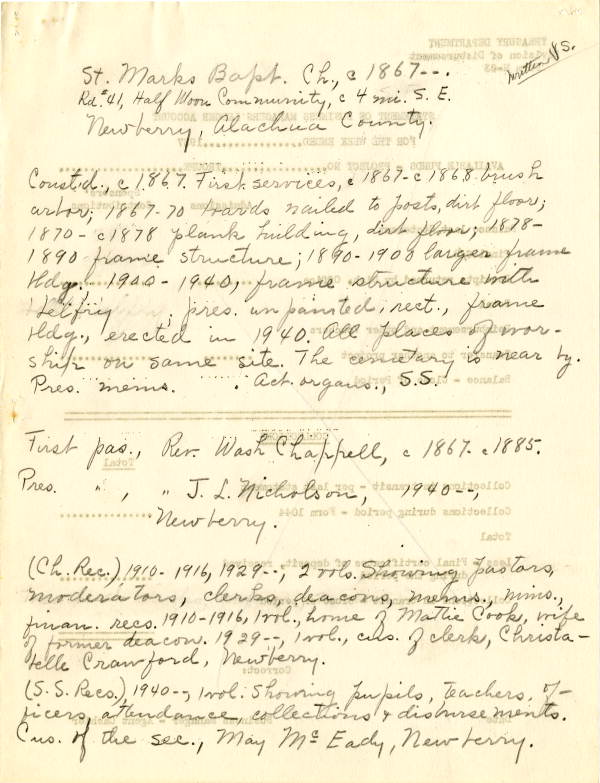 written VS.
St. Marks Bapt. Ch., c 1867--.
Rd. #41, Half Moon Community, c 4 mi. S. E.
Newberry, Alachua County.
Const'd., c 1867. First services, c 1867-c 1868 brush
arbor; 1867-70 boards nailed to posts, dirt floor;
1870-c1878 plank building, dirt floor; 1878-
1890 frame structure; 1890-1900 larger frame
bldg.; 1900-1940, frame structure with
belfry; pres. unpainted, rect., frame
bldg., erected in 1940. All places of wor-
ship on same site. The cemetery is near by.
Pres. mems. . Act. organs., S.S.
First pas., Rev. Wash Chappell, c 1867-c1885.
Pres. " , " J. L. Nicholson, 1940--,
Newberry.
(Ch. Rec.), 1910-1916, 1929--, 2 vols. Showing pastors,
moderators, clerks, deacons, mems., mins.,
finan. recs. 1910-1916, 1vol., home of Mattie Cook, wife
of former deacon. 1929--, 1vol., cus. of clerk, Christa-
belle Crawford, Newberry.
(S. S. Recs.), 1940--, 1vol. Showing pupils, teachers, of-
ficers, attendance, collections & disbursements.
Cus. of the sec., May McEady, Newberry.